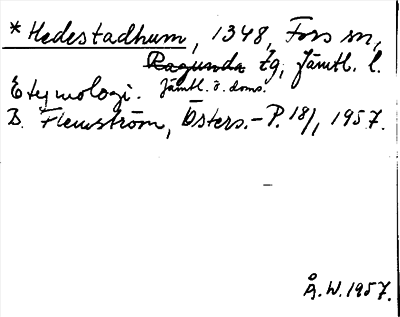 * Hedestadhum, 1348, Fors sn,
Ragunda tg, Jämtl. l.
Jämtl. ö. doms.
Etymologi.
B. Flemström, Östers.-P. 18/1, 1957.
Å.W. 1957.